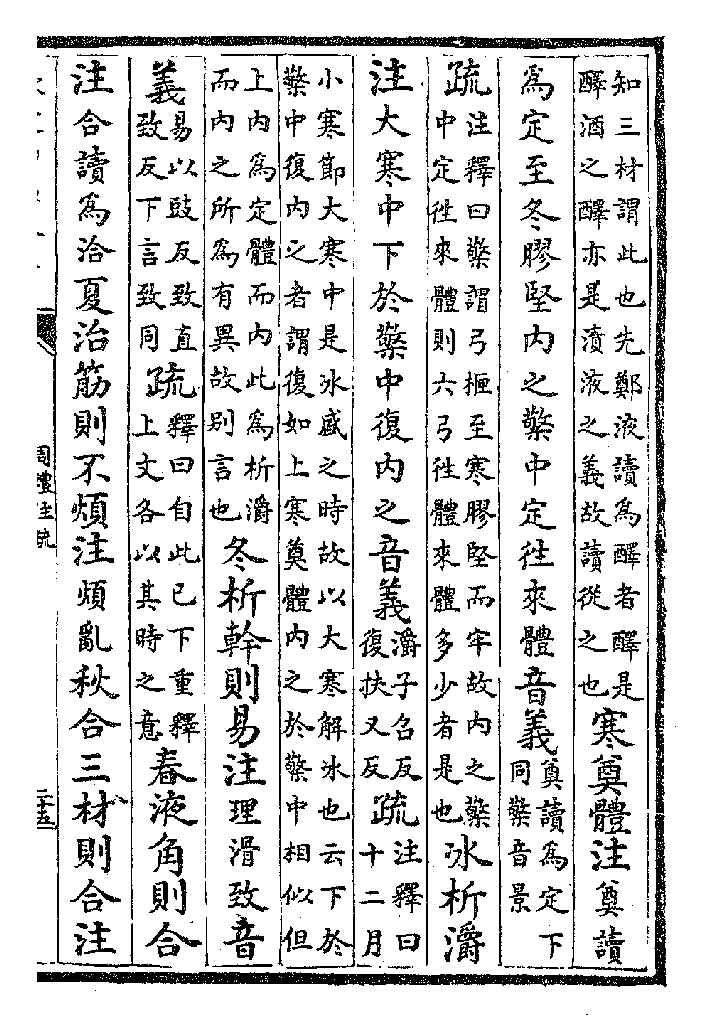 知三材謂此也先鄭液讀爲醳者醳是
醳酒之醳亦是漬液之義故讀從之也
寒奠體注奠讀
爲定至冬膠堅内之檠中定往來體音義
奠讀爲定下
同檠音景
疏
注釋曰檠謂弓柙至寒膠堅而牢故内之檠
中定往來體則六弓往體來體多少者是也
冰析灂
注大寒中下於檠中復内之音義
灂子召反
復扶又反
疏
注釋曰
十二月
小寒節大寒中是冰盛之時故以大寒解冰也云下於
檠中復内之者謂復如上寒奠體内之於檠中相似但
上内爲定體而内此爲析灂
而内之所爲有異故别言也
冬析幹則易注理滑致音
義
易以豉反致直
致反下言致同
疏
釋曰自此已下重釋
上文各以其時之意
春液角則合
注合讀爲洽夏治筋則不煩注煩亂秋合三材則合注
周禮注疏
二十五